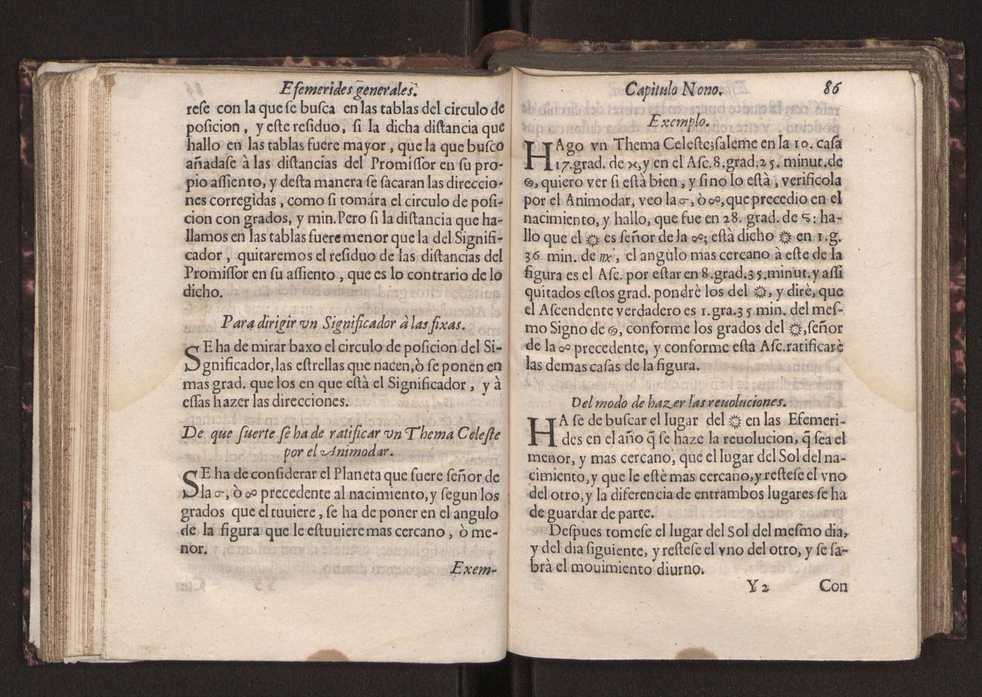 Efemerides generales.
rese con la que se busca en las tablas del circulo de
posicion, y este residuo, si la dicha distancia que
hallo en las tablas fuere mayor, que la que busco
añadase à las distancias del Promissor en su pro-
pio assiento, y desta manera se sacaran las direccio-
nes corregidas, como si tomára el circulo de posi-
cion con grados, y min. Pero si la distancia que ha-
llamos en las tablas fuere menor que la del Signifi-
cador, quitaremos el residuo de las distancias del
Promissor en su assiento, que es lo contrario de lo
dicho.
Para dirigir vn Significador à las fixas.
SE ha de mirar baxo el circulo de posicion del Si-
gnificador, las estrellas que nacen, ò se ponen en
mas grad. que los en que està el Significador, y à
essas hazer las direcciones.
De que suerte se ha de ratificar vn Thema Celeste
por el Animodar.
SE ha de considerar el Planeta que fuere señor de
la ☌, ò ☍ precedente al nacimiento, y segun los
grados que el tuuiere, se ha de poner en el angulo
de la figura que le estuuiere mas cercano, ò me-
nor.
Exem-
Capitulo Nono. 86
Exemplo.
HAgo vn Thema Celeste; saleme en la 10. casa
17. grad. de ♓, y en el Asc. 8. grad. 25. minut. de
♋, quiero ver si està bien, y sino lo està, verificola
por el Animodar, veo la ☌, ò ☍, que precedio en el
nacimiento, y hallo, que fue en 28. grad. de ♋: ha-
llo que el ☼ es señor de la ☍; està dicho ☼ en 1. g.
36 min. de ♍, el angulo mas cercano à este de la
figura es el Asc. por estar en 8. grad. 35. minut. y assi
quitados estos grad. pondrè los del ☼, y dirè, que
el Ascendente verdadero es 1. gra. 35 min. del mes-
mo Signo de ♋, conforme los grados del ☼, señor
de la ☍ precedente, y conforme esta Asc. ratificarè
las demas casas de la figura.
Del modo de hazer las reuoluciones.
HA se de buscar el lugar del ☼ en las Efemeri-
des en el año q̃ se haze la reuolucion, q̃ sea el
menor, y mas cercano, que el lugar del Sol del na-
cimiento, y que le estè mas cercano, y restese el vno
del otro, y la diferencia de entrambos lugares se ha
de guardar de parte.
Despues tomese el lugar del Sol del mesmo dia,
y del dia siguiente, y restese el vno del otro, y se sa-
brà el mouimiento diurno.
Y 2 Con